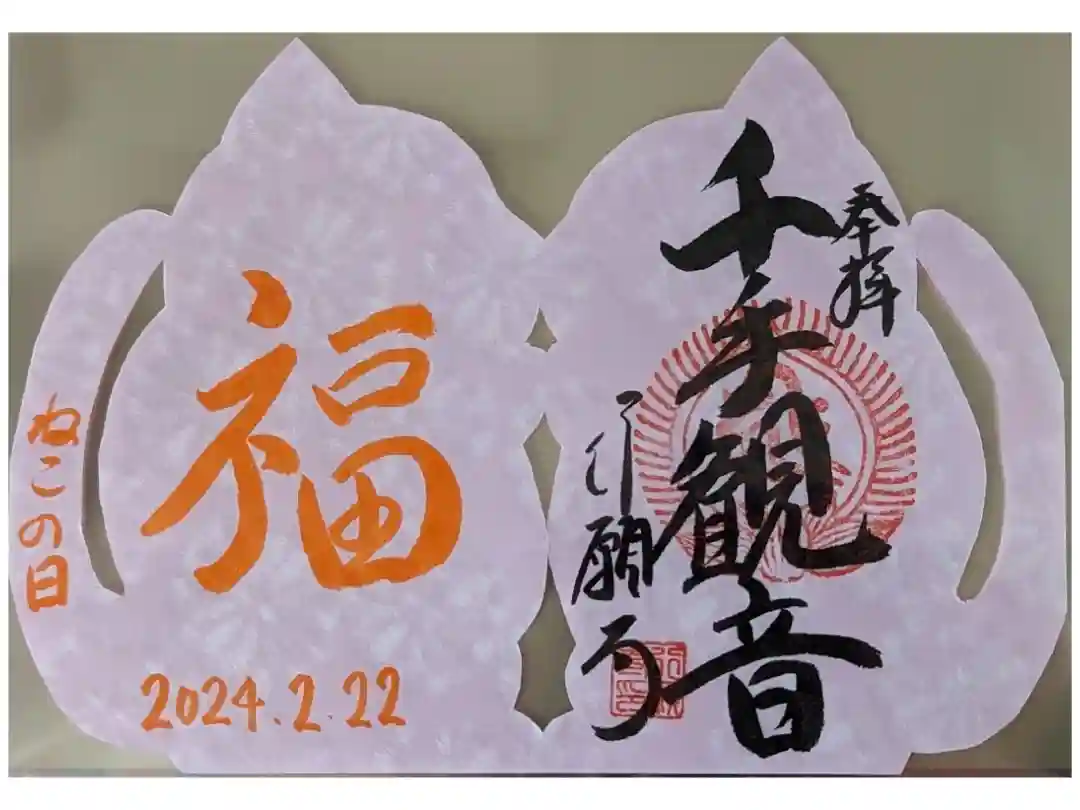 奉拝
千手観音
行願寺
福
ねこの日
2024.2.22